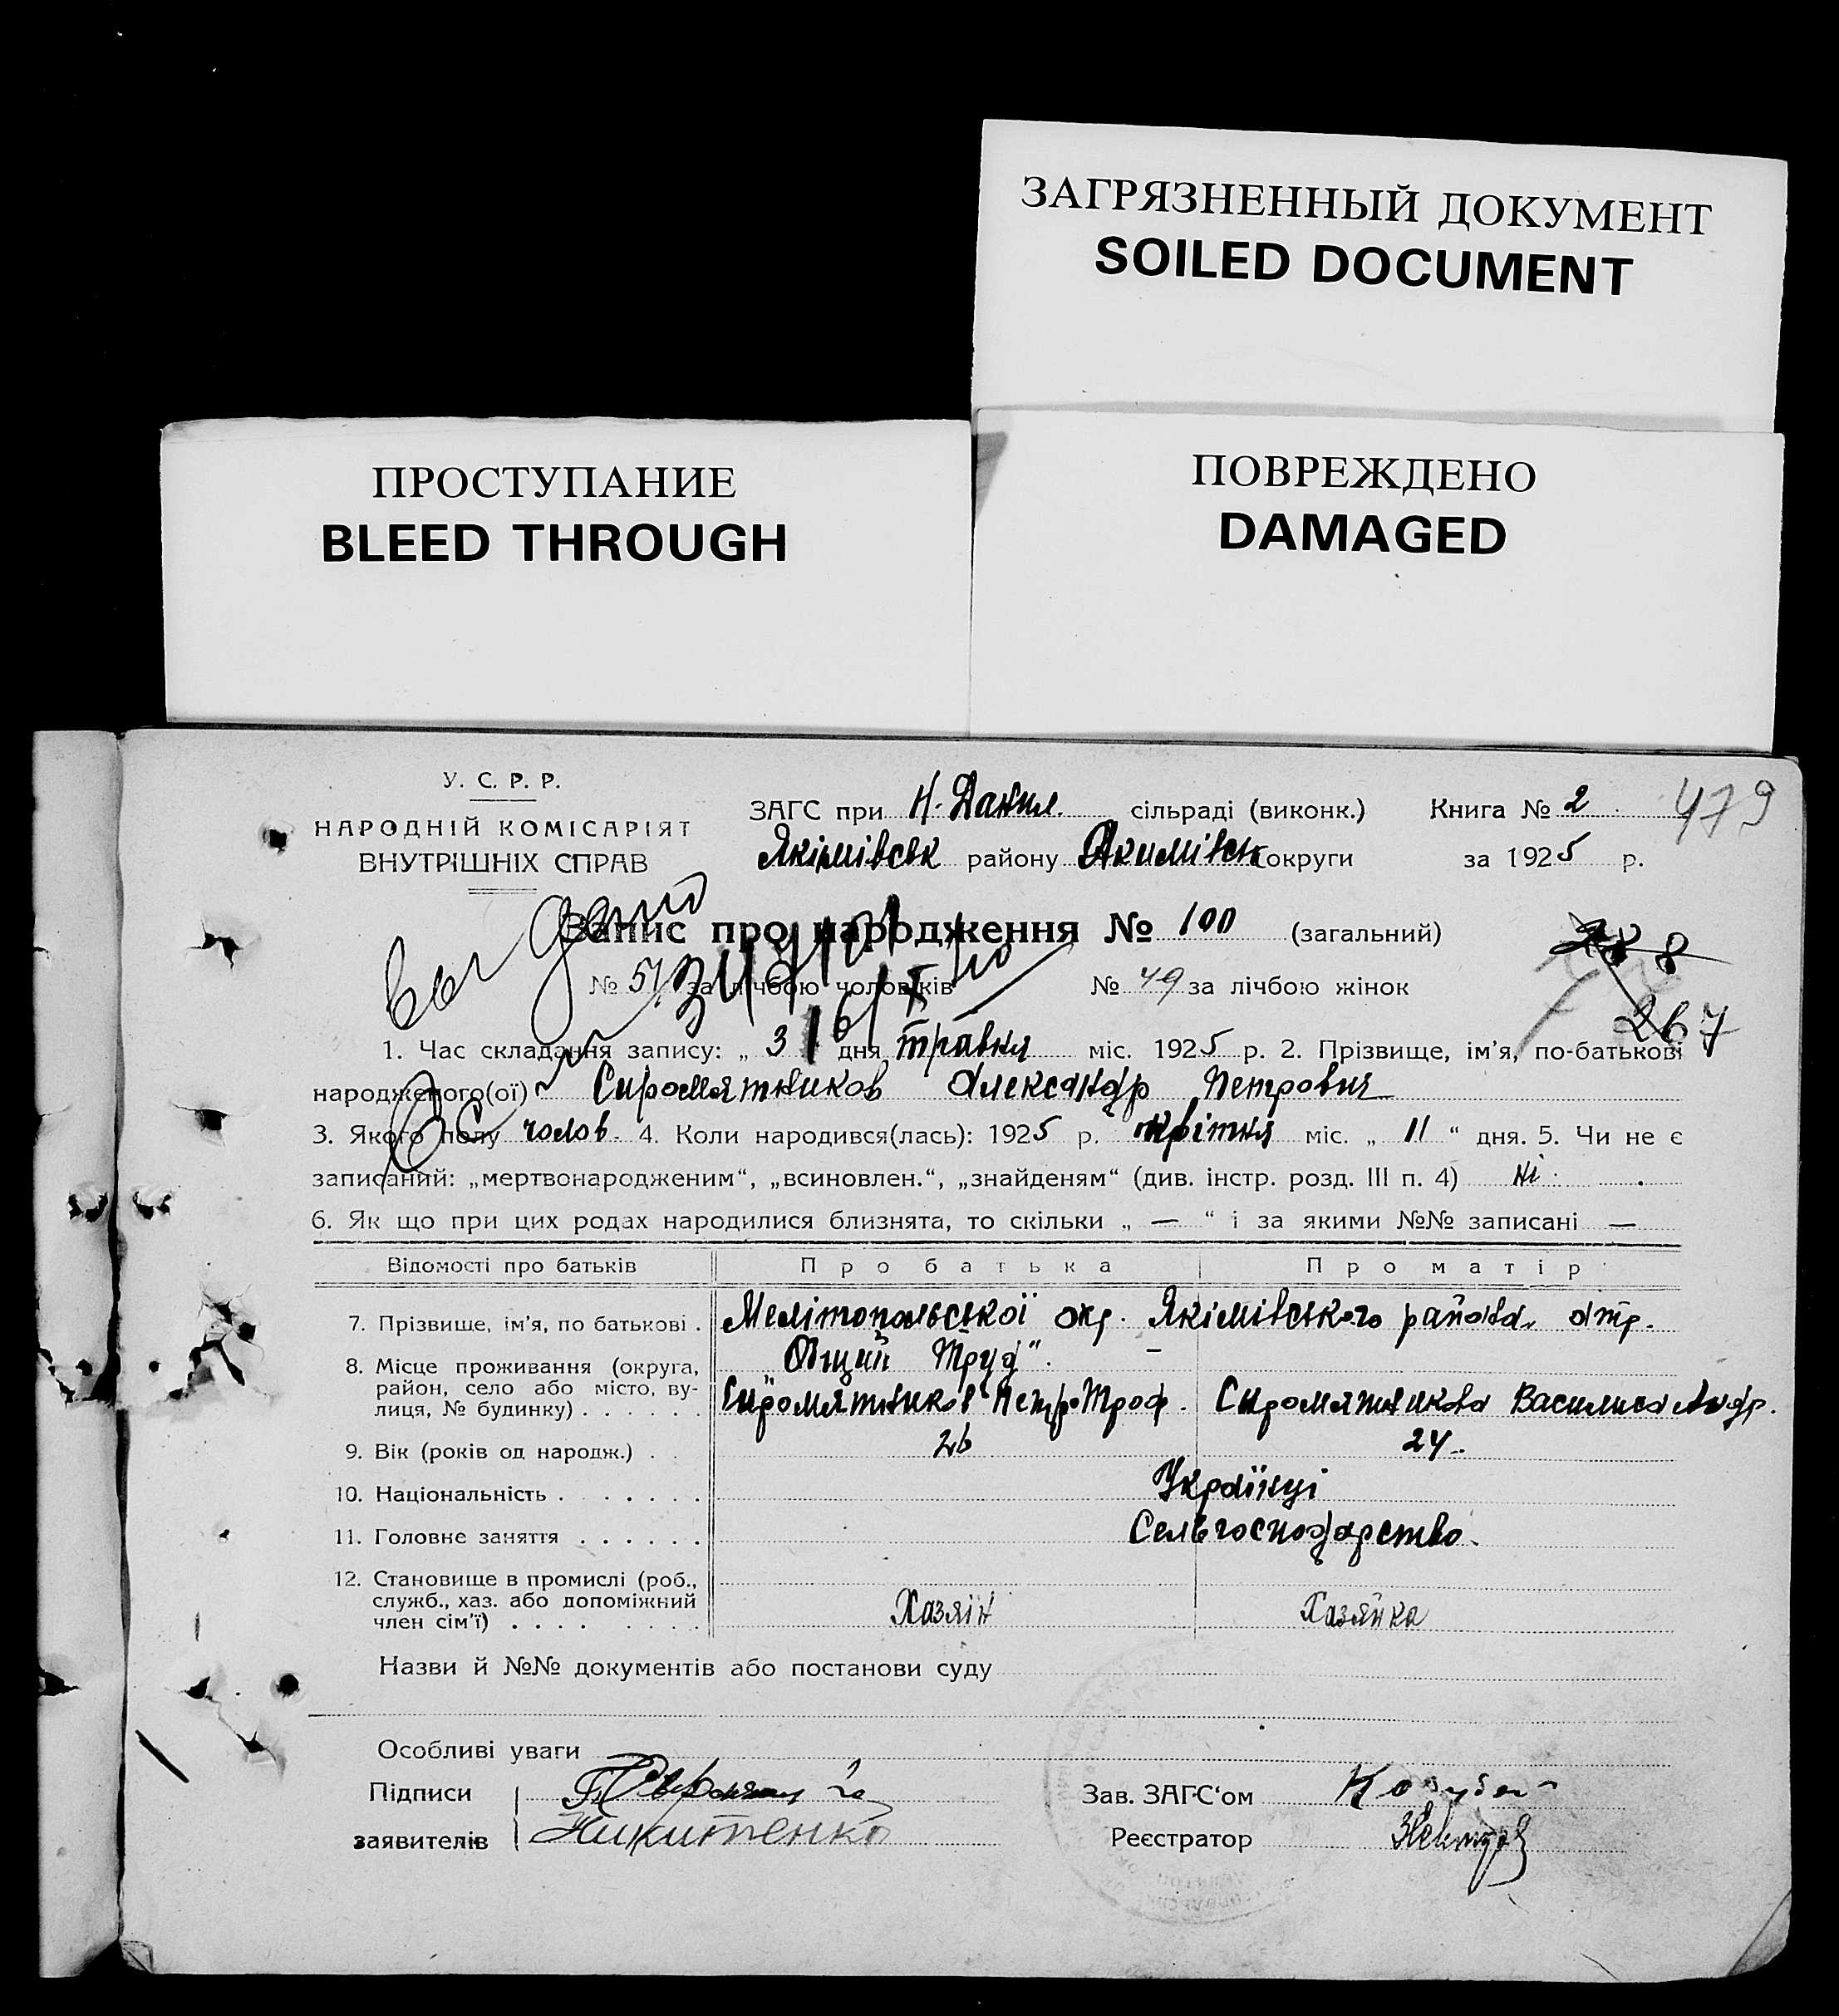 ЗАГРЯЗНЕННЫЙ ДОКУМЕНТ
SOILED DOCUMENT
ПРОСТУПАНИЕ
BLEED THROUGH
ПОВРЕЖДЕНО
DAMAGED
У. С. Р. Р.
НАРОДНІЙ КОМІСАРІЯТ
ВНУТРІШНІХ СПРАВ
ЗАГС при Н. Данил. сільраді (виконк.) Книга № 2 479
Якімівськ району Акимівськ округи за 1925 р.
Запис про народження № 100 (загальний)
№ 51 за лічбою чоловіків № 49 за лічбою жінок
267
1. Час складання запису: „ 3 дня травня міс. 1925 р. 2. Прізвище, ім'я, по-батькові
народженого(ої) Сиромятников Александр Петрович
3. Якого полу чолов. 4. Коли народився(лась): 1925 р. квітня міс. „ 11 “ дня. 5. Чи не є
записаний: „мертвонародженим“, „всиновлен.“, „знайденям“ (див. інстр. розд. III п. 4) ні
6. Як що при цих родах народилися близнята, то скільки „ — “ і за якими №№ записані —
Відомості про батьків Про батька Про матір
7. Прізвище, ім'я, по батькові . Мелітопольської окр. Якімівського району отр.
8. Місце проживання (округа, район, село або місто, вулиця, № будинку) . . . . . . „Общий Труд“. –
Сиромятников Петр Троф. Сиромятникова Василиса Андр.
9. Вік (років од народж.) . . 26 24
10. Національність . . . . . . . Українці
11. Головне заняття . . . . . . Сельгосподарство.
12. Становище в промислі (роб., служб., хаз. або допоміжний член сім'ї) . . . . . . . . Хазяін Хазяйка
Назви й №№ документів або постанови суду
Особливі уваги
Підписи Зав. ЗАГС'ом
заявителів Никитенко Реєстратор